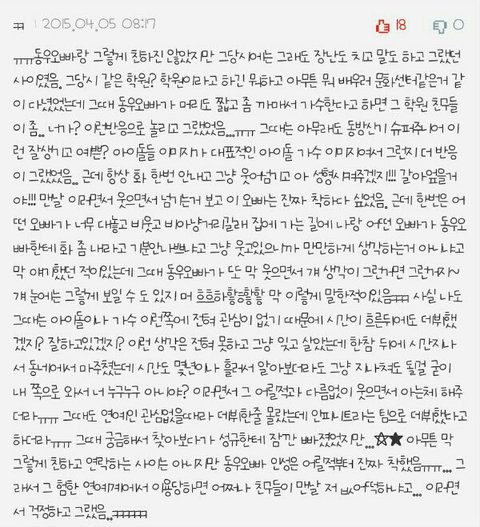 ㅠㅠ | 2015.04.05 08:17 18 0
ㅠㅠ동우오빠랑 그렇게 친하진 않았지만 그당시에는 그래도 장난도 치고 말도 하고 그랬던
사이였음. 그당시 같은 학원? 학원이라고 하긴 뭐하고 아무튼 뭐 배우러 문화센터같은거 같
이 다녔었는데 그때 동우오빠가 머리도 짧고 좀 까매서 가수한다고 하면 그 학원 친구들
이 좀.. 너가? 이런반응으로 놀리고 그랬었음...ㅠㅠ 그때는 아무래도 동방신기 슈퍼주니어 이
런 잘생기고 예쁜? 아이돌들 이미지가 대표적인 아이돌 가수 이미지여서 그런지 더 반응
이 그랬었음.. 근데 항상 화 한번 안내고 그냥 웃어넘기고 아 성형시켜주겠지!!! 갈아엎을거
야!!! 만날 이러면서 웃으면서 넘기는거 보고 이 오빠는 진짜 착하다 싶었음. 근데 한번은 어
떤 오빠가 너무 대놓고 비웃고 비아냥거리길래 집에 가는 길에 나랑 어떤 오빠가 동우오
빠한테 화 좀 내라고 기분안나쁘냐고 그냥 웃고있으니까 만만하게 생각하는거 아니냐고
막 얘기했던 적이있는데 그때 동우오빠가 또 막 웃으면서 걔 생각이 그런거면 그런거지~
걔 눈에는 그렇게 보일 수 도 있지 머 흐흐하핳핳핳 막 이렇게 말한적이있음ㅋㅋㅋ 사실 나도
그때는 아이돌이나 가수 이런쪽에 전혀 관심이 없기 때문에 시간이 흐른뒤에도 데뷔했
겠지? 잘하고있겠지? 이런 생각은 전혀 못하고 그냥 잊고 살았는데 한참 뒤에 시간지나
서 동네에서 마주쳤는데 시간도 몇년이나 흘러서 알아보더라도 그냥 지나쳐도 될걸 굳이
내 쪽으로 와서 너 누구누구 아니야? 이러면서 그 어릴적과 다름없이 웃으면서 아는체 해주
더라ㅠㅠ 그때도 연예인 관심없을때라 데뷔한줄 몰랐는데 인피니트라는 팀으로 데뷔했다고
하더라ㅠㅠ 그때 궁금해서 찾아보다가 성규한테 잠깐 빠졌었지만...☆★ 아무튼 막
그렇게 친하고 연락하는 사이는 아니지만 동우오빠 인성은 어릴적부터 진짜 착했음ㅠㅠ... 그
래서 그 험한 연예계에서 이용당하면 어쩌나 친구들이 만날 저 어떡하냐고... 이러면
서 걱정하고 그랬음..ㅋㅋㅋㅋㅋ